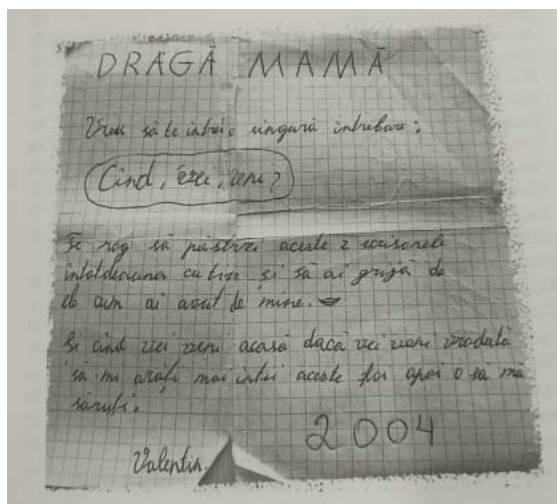 DRAGĂ MAMĂ
Vreu să te intreb o singură intrebare:
Cind, vei, veni?
Te rog să păstrezi aceste 2 scrisorele
intotdeauna cu tin și să ai grijă de
ele cum ai avut de mine.
Și cind vei veni acasă dacă vei veni vrodată
să-mi arați mai intii aceste foi apoi o să mă
săruți.
2004
Valentin.